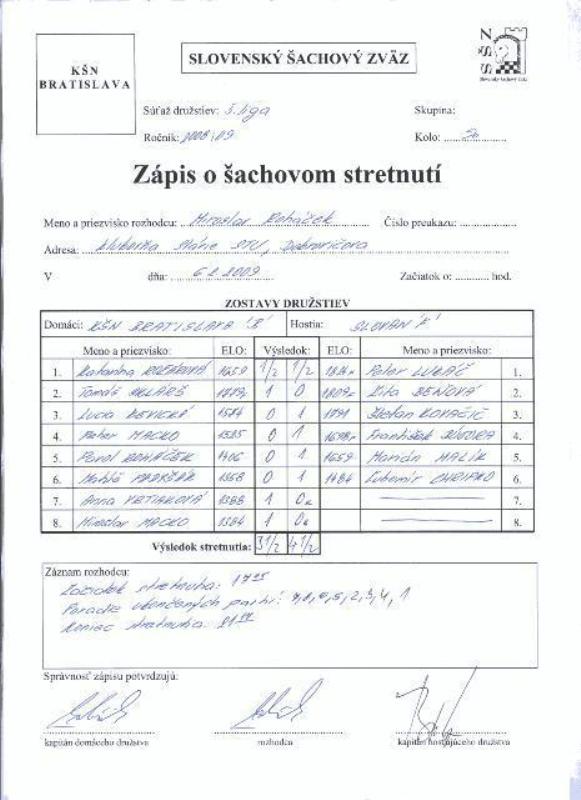 KŠN
BRATISLAVA
SLOVENSKÝ ŠACHOVÝ ZVÄZ
Súťaž družstiev: 5. liga
Skupina:
Ročník: 2008/09
Kolo:
Zápis o šachovom stretnutí
Meno a priezvisko rozhodcu: Miroslav Roháček Číslo preukazu:
Adresa: STU, Dobrovičova
V dňa: 6.2.2009 Začiatok o: hod.
ZOSTAVY DRUŽSTIEV
Domáci: KŠN BRATISLAVA "B" Hostia: SLOVAN "F"
Meno a priezvisko: ELO: Výsledok: ELO: Meno a priezvisko:
1. Katarína 1659 1/2 1/2 Peter LUKÁČ 1.
2. Tomáš 1 0 Zita BEŇOVÁ 2.
3. Lucia 0 1 1791 Štefan KOVAČIČ 3.
4. Peter MACKO 1535 0 1 František 4.
5. Pavol ROHÁČEK 1406 0 1 1659 Marián MALÍK 5.
6. Matúš 1368 0 1 1484 Ľubomír CHRIPKO 6.
7. Anna 1388 1 0k 7.
8. Miroslav MACKO 1384 1 0k 8.
Výsledok stretnutia: 3 1/2 4 1/2
Záznam rozhodcu:
Začiatok stretnutia:
Poradie ukončených partií: 7,8,6,5,2,3,4,1
Koniec stretnutia:
Správnosť zápisu potvrdzujú:
kapitán domáceho družstva rozhodca kapitán hosťujúceho družstva